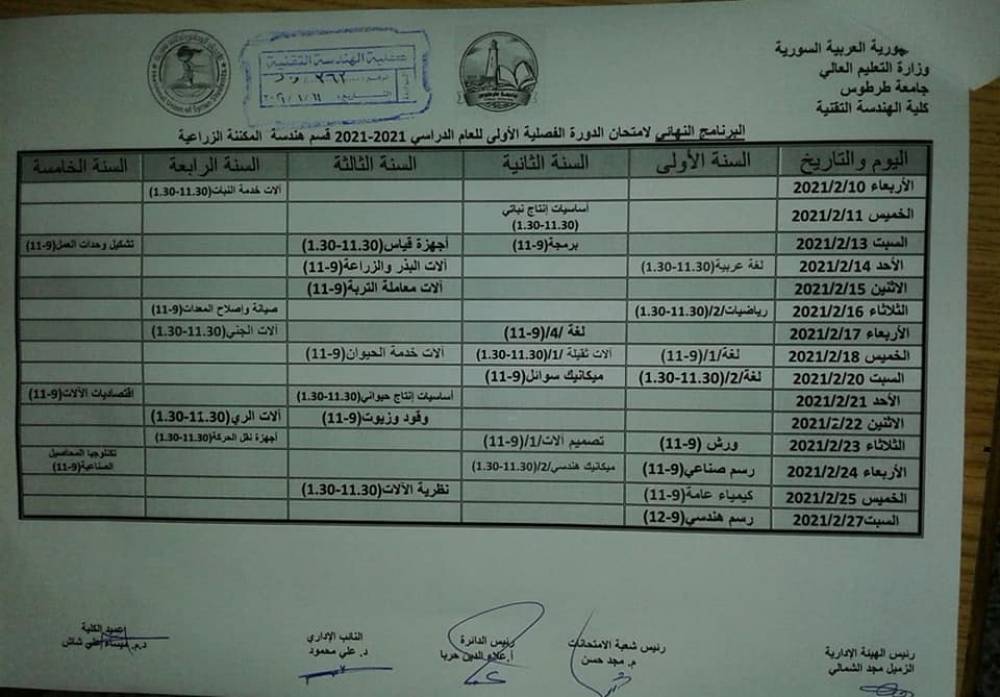 جهورية العربية السورية
وزارة التعليم العالي
جامعة طرطوس
كلية الهندسة التقنية
كلية الهندسة التقنية
البرنامج النهائي لامتحان الدورة الفصلية الأولى للعام الدراسي 2021-2021 قسم هندسة المكننة الزراعية
اليوم والتاريخ السنة الأولى السنة الثانية السنة الثالثة السنة الرابعة السنة الخامسة
الأربعاء 2021/2/10 آلات خدمة النبات(11.30-1.30)
الخميس 2021/2/11 أساسيات إنتاج نباتي
(11.30-1.30)
السبت 2021/2/13 برمجة(9-11) أجهزة قياس(11.30-1.30) تشكيل وحدات العمل(9-11)
الأحد 2021/2/14 لغة عربية(11.30-1.30) آلات البذر والزراعة(9-11)
الاثنين 2021/2/15 آلات معاملة التربة(9-11)
الثلاثاء 2021/2/16 رياضيات/2/(11.30-1.30) صيانة وإصلاح المعدات(9-11)
الأربعاء 2021/2/17 لغة /4/(9-11) آلات الجني(11.30-1.30)
الخميس 2021/2/18 لغة/1/(9-11) آلات ثقيلة /1/(11.30-1.30) آلات خدمة الحيوان(9-11)
السبت 2021/2/20 لغة/2/(11.30-1.30) ميكانيك سوائل(9-11)
الأحد 2021/2/21 أساسيات إنتاج حيواني(11.30-1.30) اقتصاديات الآلات(9-11)
الاثنين 2021/2/22 وقود وزيوت(9-11) آلات الري(11.30-1.30)
الثلاثاء 2021/2/23 ورش (9-11) تصميم آلات/1/(9-11) أجهزة نقل الحركة(11.30-1.30)
الأربعاء 2021/2/24 رسم صناعي(9-11) ميكانيك هندسي/2/(11.30-1.30) تكنلوجيا المحاصيل
الصناعية(9-11)
الخميس 2021/2/25 كيمياء عامة(9-11) نظرية الآلات(11.30-1.30)
السبت2021/2/27 رسم هندسي(9-12)
رئيس الهيئة الإدارية
الزميل مجد الشمالي
رئيس شعبة الامتحانات
م. مجد حسن
رئيس الدائرة
أ.علاء الدين حربا
النائب الإداري
د. علي محمود
عميد الكلية
د.م. ميساء علي شاش